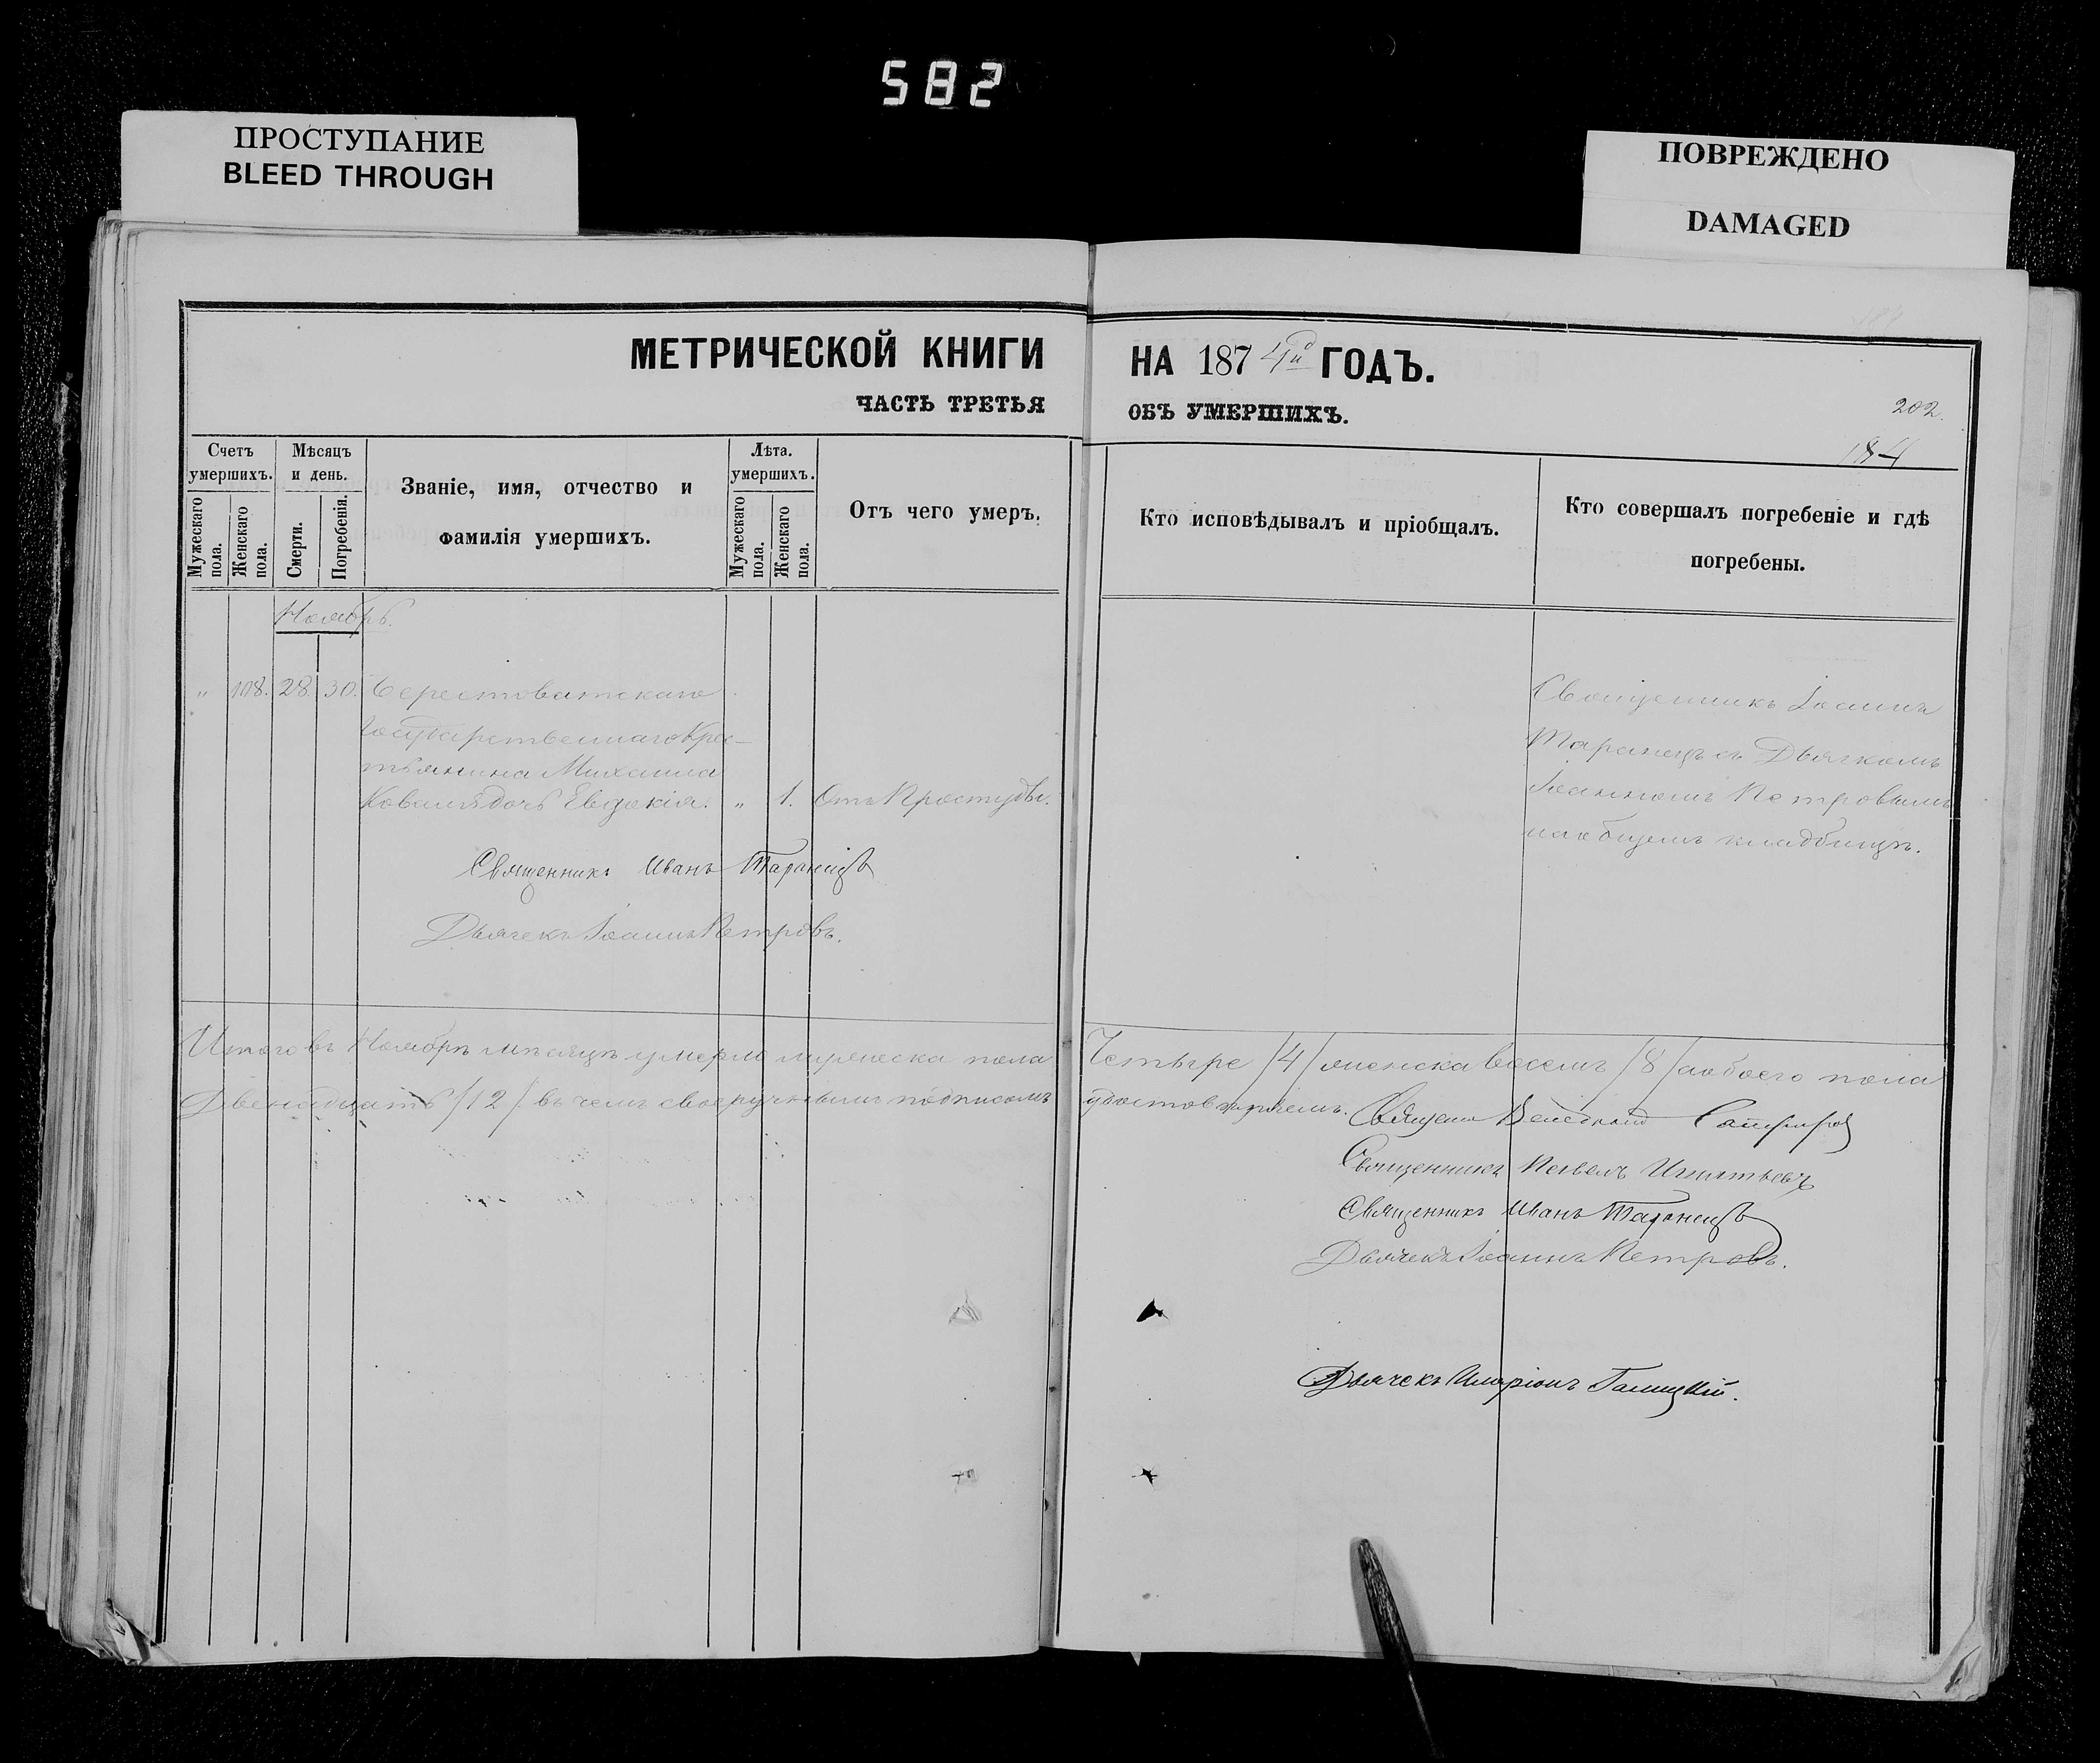 582
ПРОСТУПАНИЕ
BLEED THROUGH
ПОВРЕЖДЕНО
DAMAGED
МЕТРИЧЕСКОЙ КНИГИ
ЧАСТЬ ТРЕТЬЯ
Счетъ умершихъ.
Мужескаго пола.
Женскаго пола.
Мѣсяцъ и день.
Смерти.
Погребенія.
Званіе, имя, отчество и
фамилія умершихъ.
Лѣта.
умершихъ.
Мужескаго пола.
Женскаго пола.
Отъ чего умеръ.
Ноябрь.
" 108. 28. 30. Берестоватскаго
Государственнаго Крес-
тьянина Михаила
Коваля дочь Евдокія. " 1. Отъ Простуды.
Священникъ Иванъ Таранецъ
Дьячекъ Іоаннъ Петровъ.
Итого въ Ноябрѣ мѣсяцѣ умерло мужеска пола
Двенадцать /12/. въ чемъ своеручнымъ подписомъ
НА 1874й ГОДЪ.
ОБЪ УМЕРШИХЪ.
202.
184
Кто исповѣдывалъ и пріобщалъ.
Кто совершалъ погребеніе и гдѣ
погребены.
Священникъ Іоаннъ
Таранецъ съ Дьячкомъ
Іоанномъ Петровымъ
на общемъ кладбищѣ.
Четыре /4/ женска восемъ /8/ а обоего пола
удостовѣряемъ. Священ
Священникъ Павелъ Игнатьевъ
Священникъ Иванъ Таранецъ
Дьячекъ Іоаннъ Петровъ.
Дьячекъ Иларіонъ Галицкій.